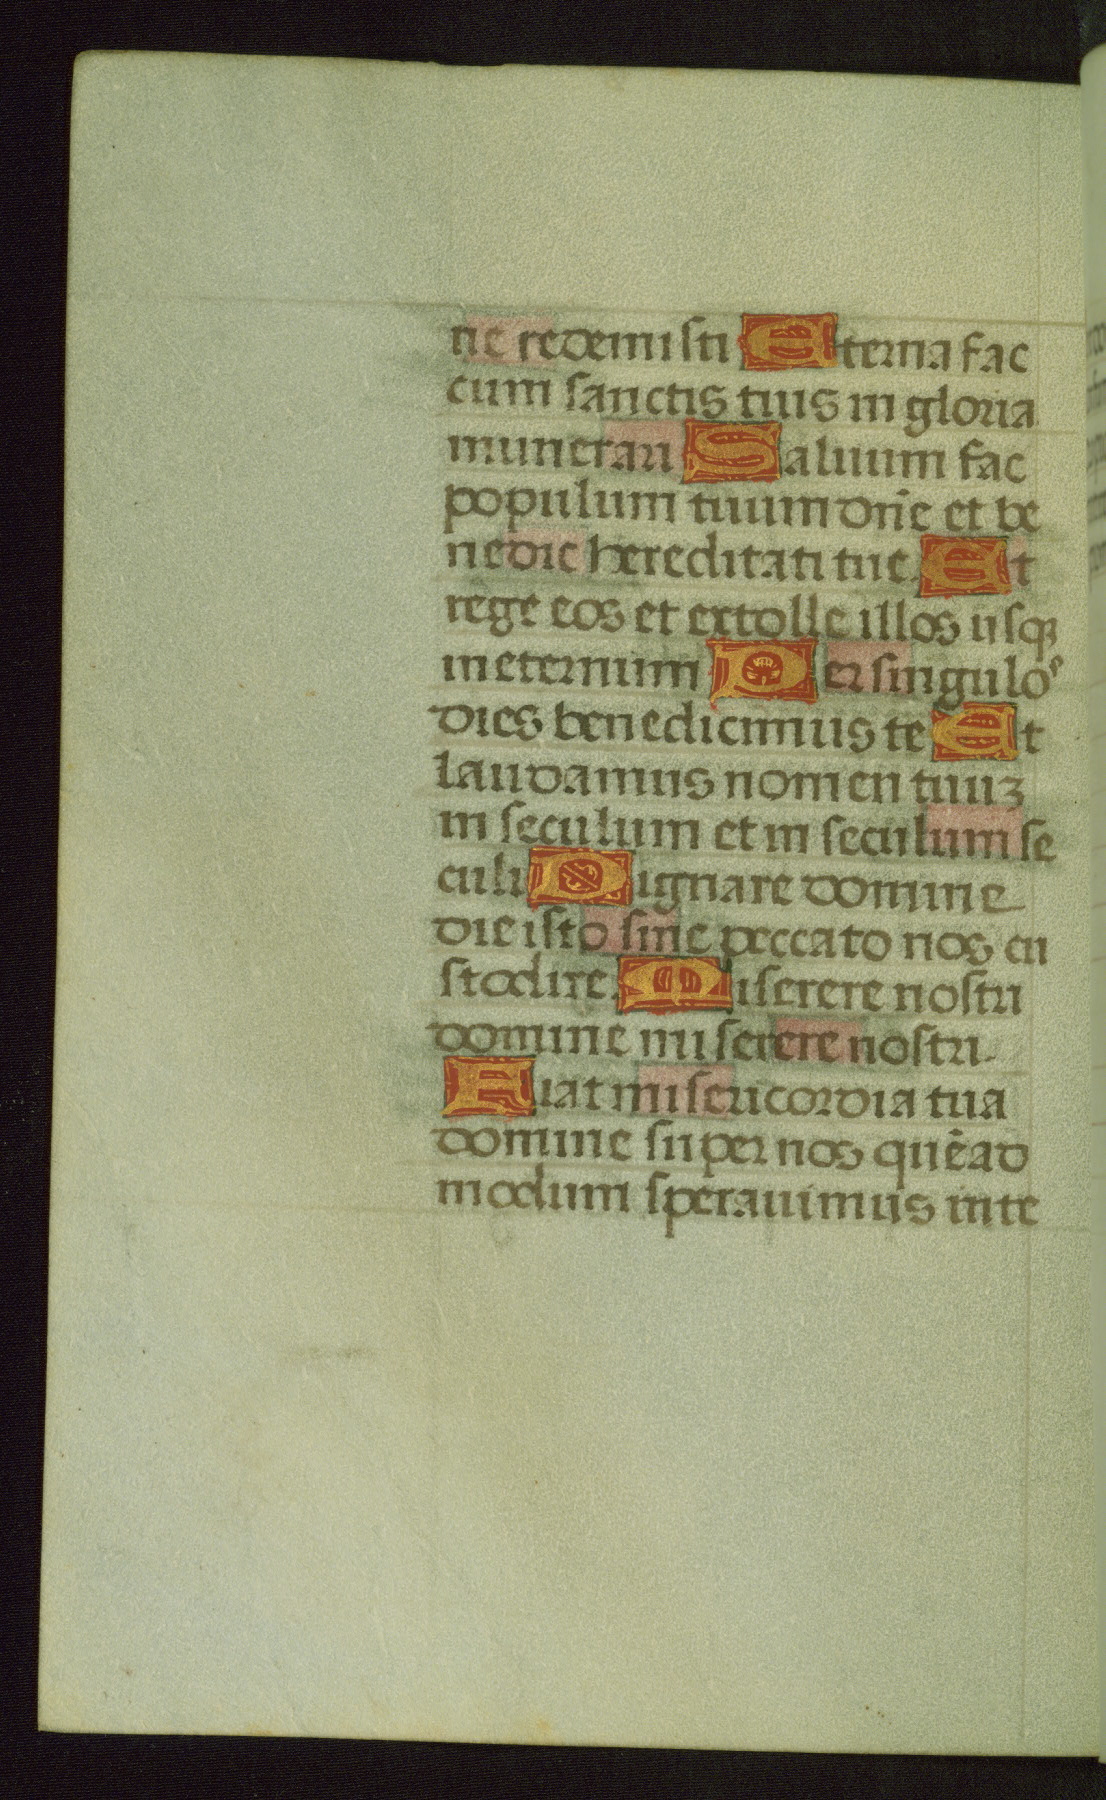 ne redemisti Eterna fac
cum sanctis tuis in gloria
munerari Saluum fac
populum tuum dñe et be
nedic hereditati tue. Et
rege eos et extolle illos usqꝫ
in eternum Per singulos
dies benedicimus te Et
laudamus nomen tuuꝫ
in seculum et in seculum se
culi Dignare domine
die isto sine peccato nos cu
stodire. Miserere nostri
domine miserere nostri.
Fiat misericordia tua
domine super nos quēad
modum sperauimus in te